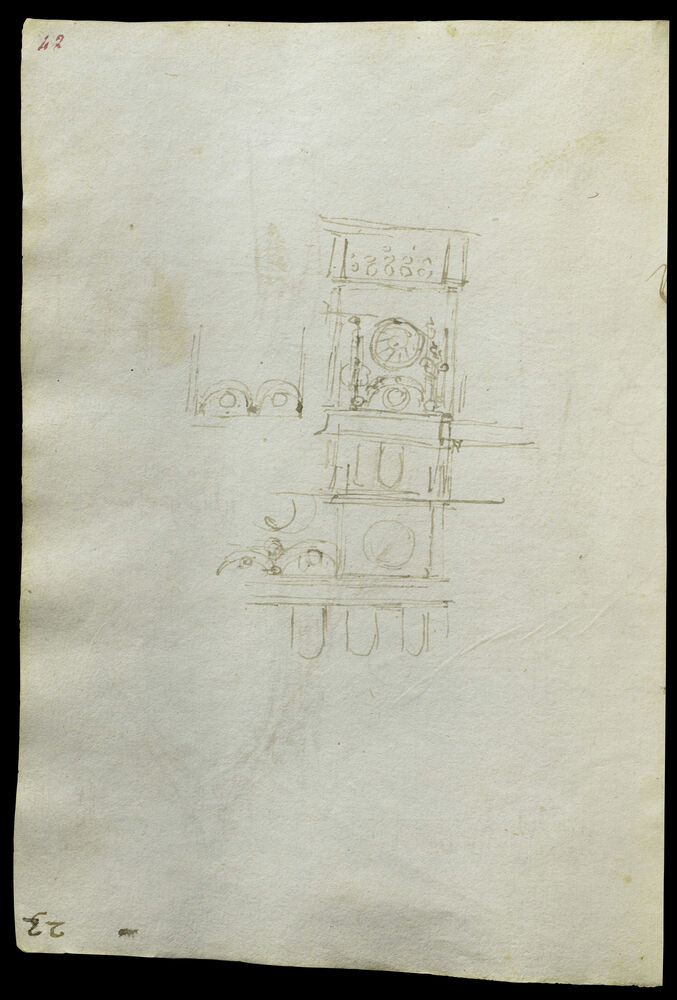 42
23